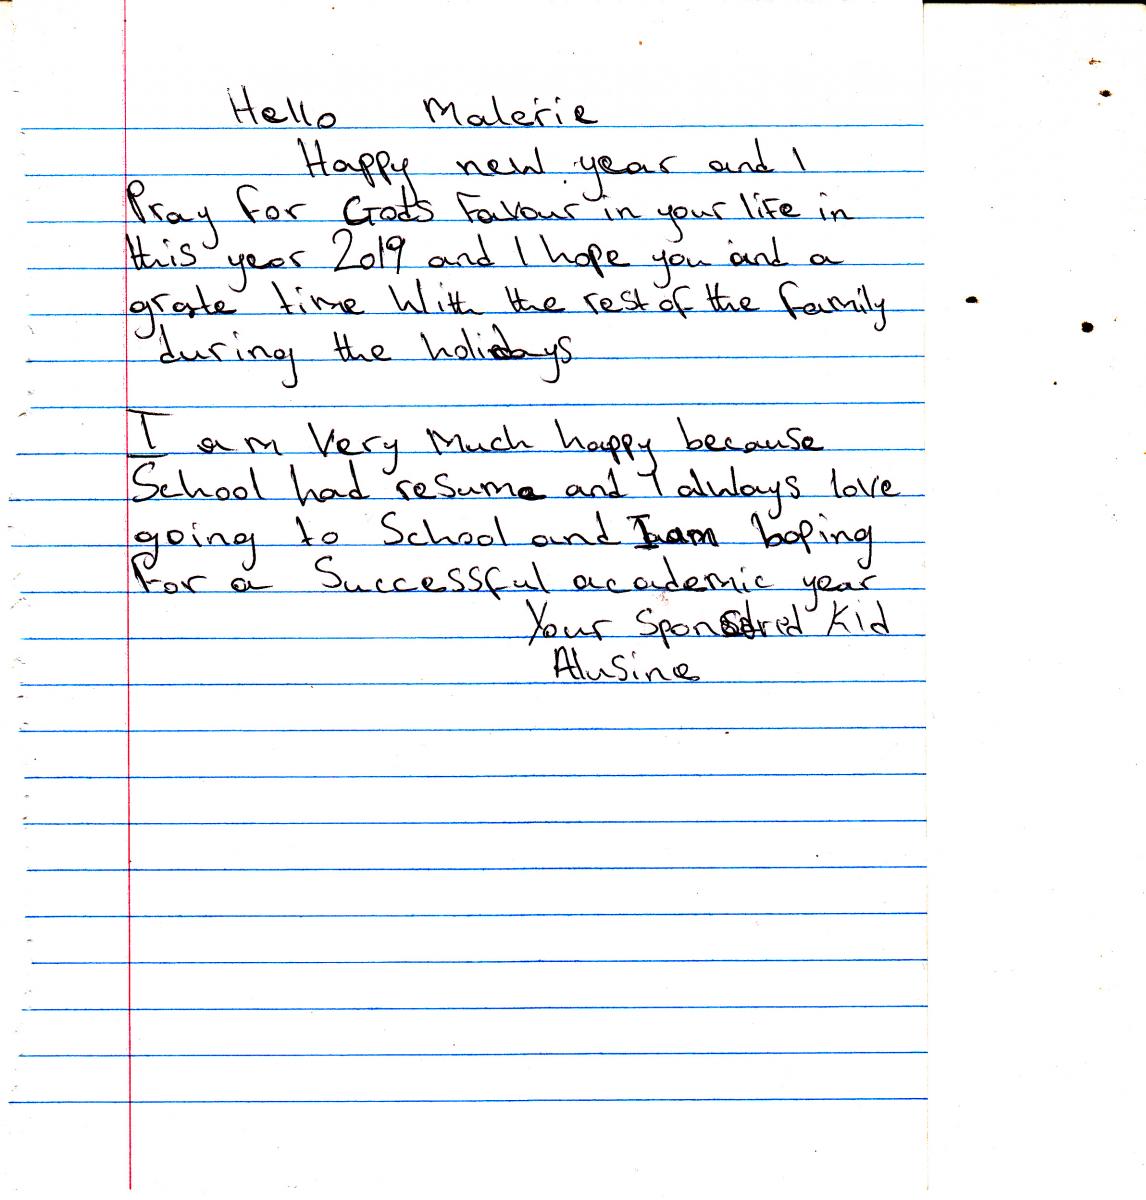 Hello Malerie
Happy new year and I
Pray for God's favour in your life in
this year 2019 and I hope you and a
grate time With the rest of the family
during the holidays
I am Very Much happy because
School had resume and I always love
going to School and I am hoping
For a Successful academic year
Your Sponsored Kid
Alusine